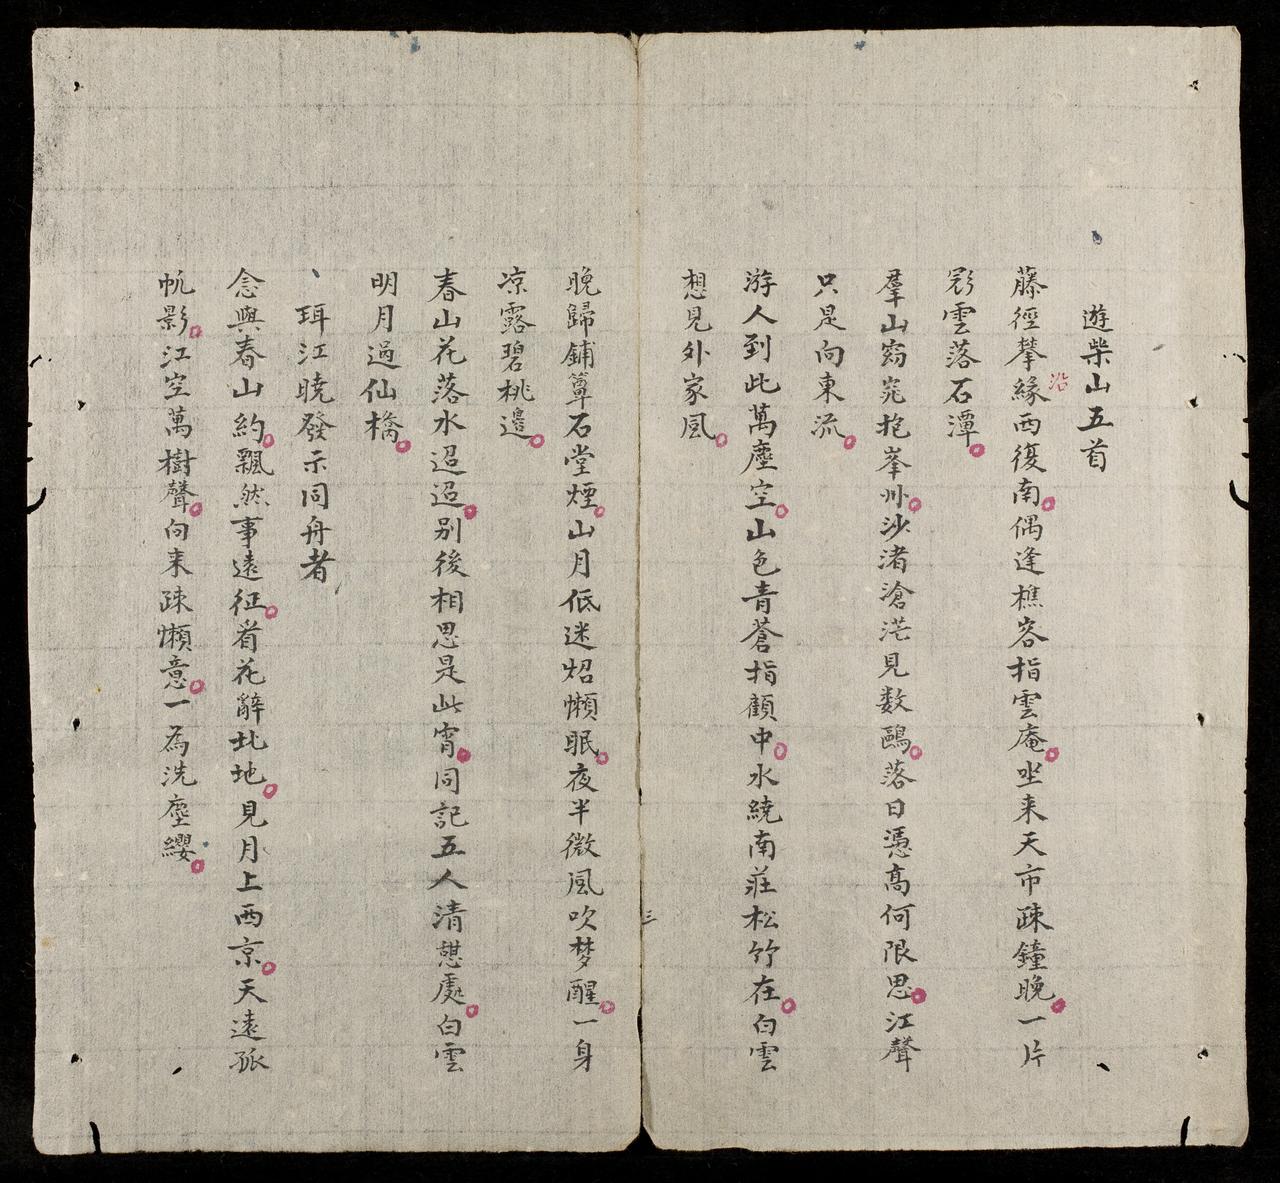 遊柴山五首
藤徑攀緣西復南偶逢樵客指雲庵坐来天市疎鐘晚一片
沿
彩雲落石潭
羣山窈窕抱峯州沙渚滄茫見数鷗落日憑高何限思江聲
只是向東流
游人到此萬塵空山色青蒼指顧中水繞南莊松竹在白雲
想見外家風
三
晚歸鋪簟石堂煙山月低迷炤懶眠夜半微風吹梦醒一身
凉露碧桃邊
春山花落水迢迢别後相思是此宵同記五人清憇處白雲
明月過仙橋
珥江曉發示同舟者
念與春山約飄然事遠征看花辭北地見月上西京天遠孤
帆影江空萬樹聲向来疎懶意一為洗塵纓